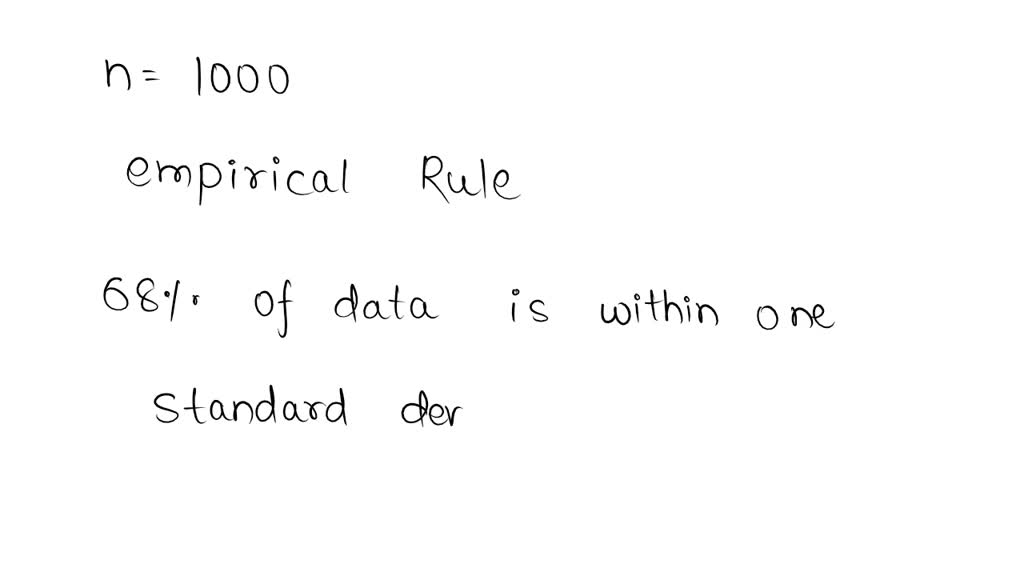 n= 1000
empirical Rule
68% of data is within one
standard dev